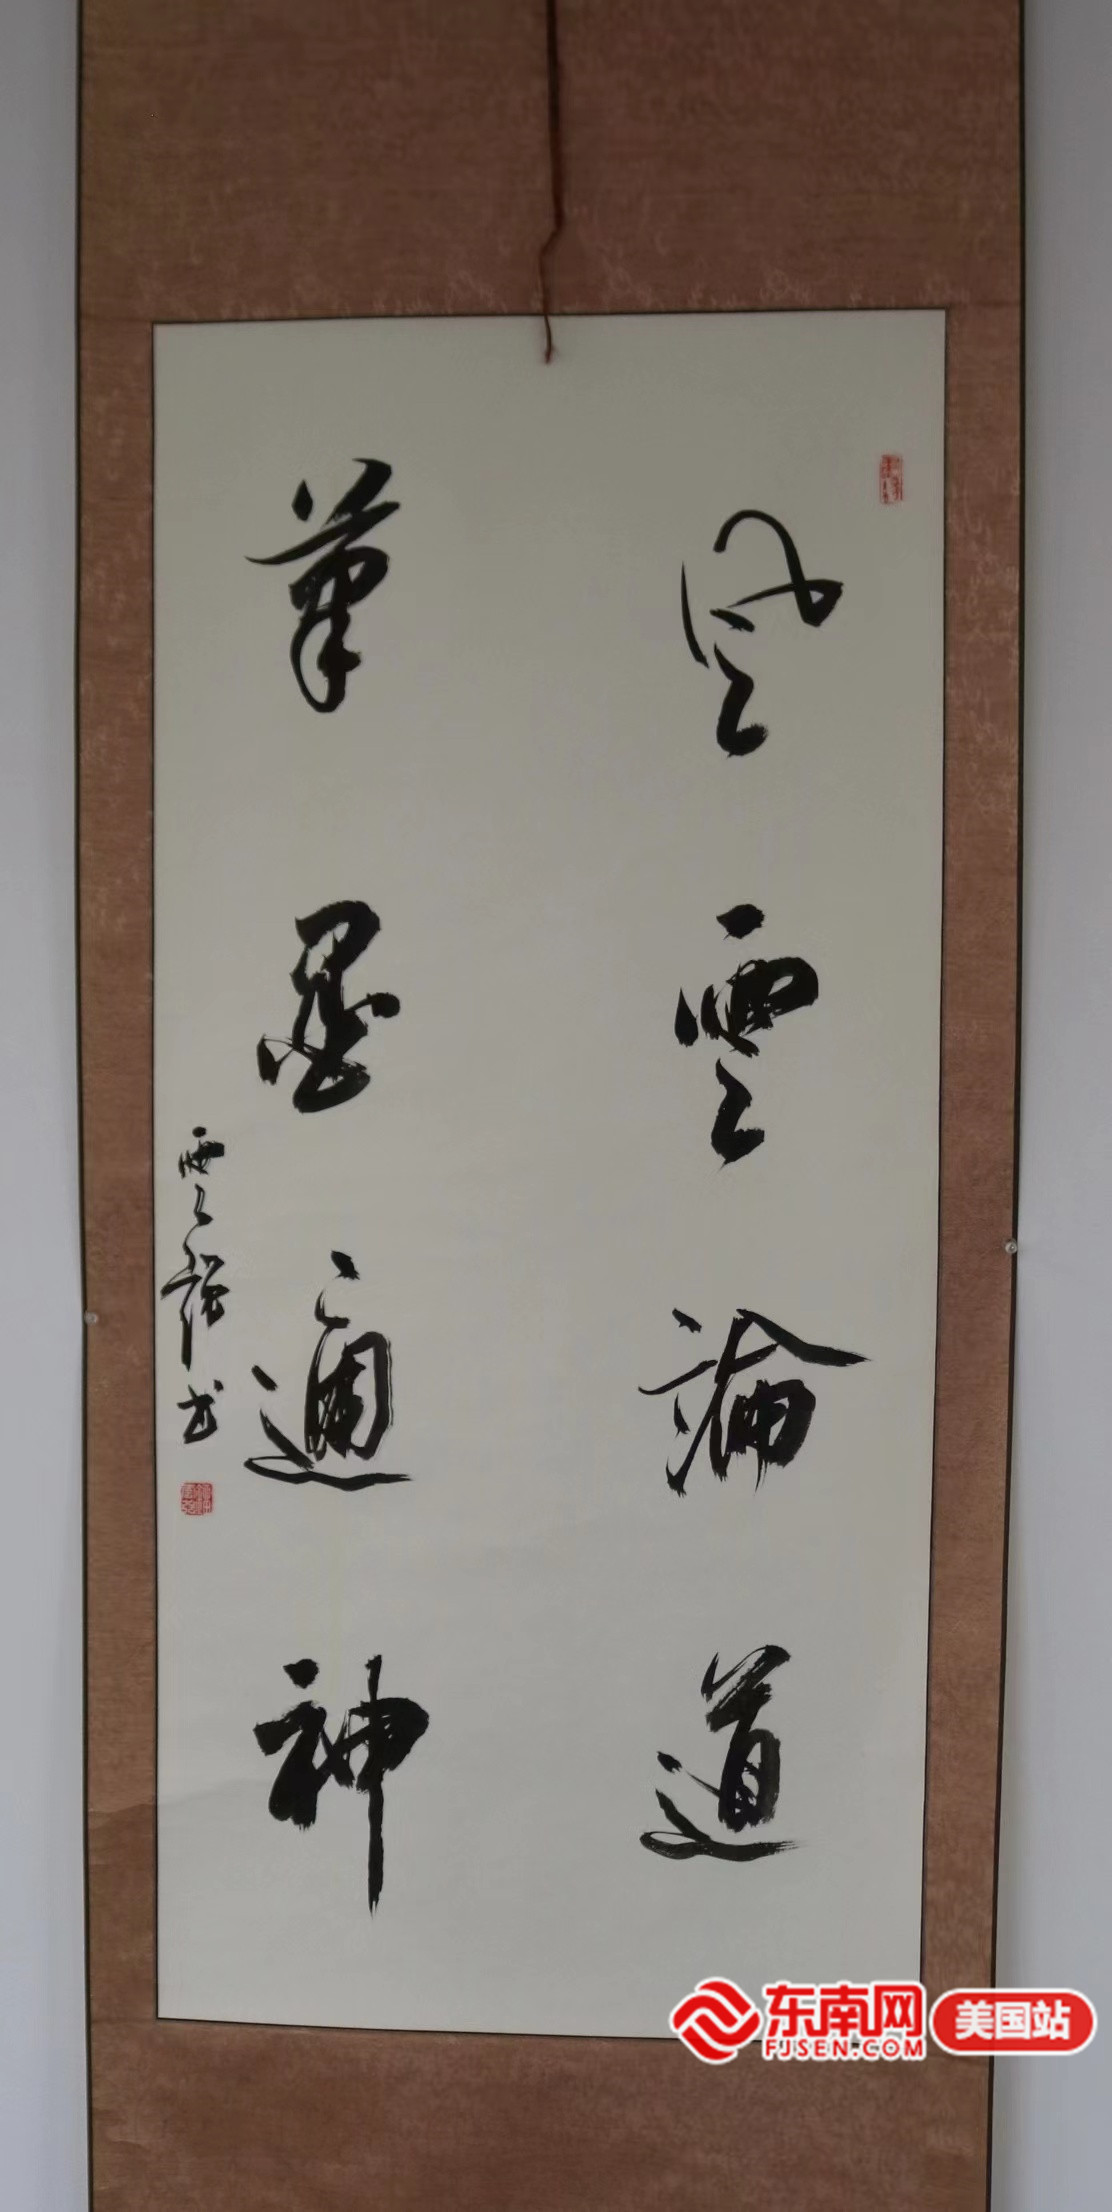 风雲論道
筆墨通神
雲强书
东南网
FJSEN.COM
美国站